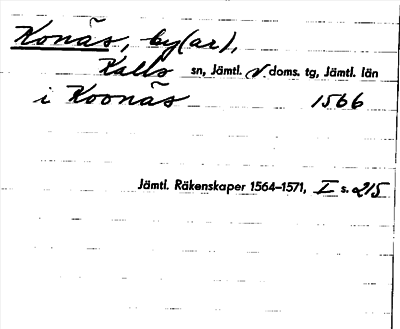 Konäs, by(ar),
Kalls sn, Jämtl. V. doms. tg, Jämtl. län
i Koonäs 1566
Jämtl. Räkenskaper 1564–1571, I s. 215